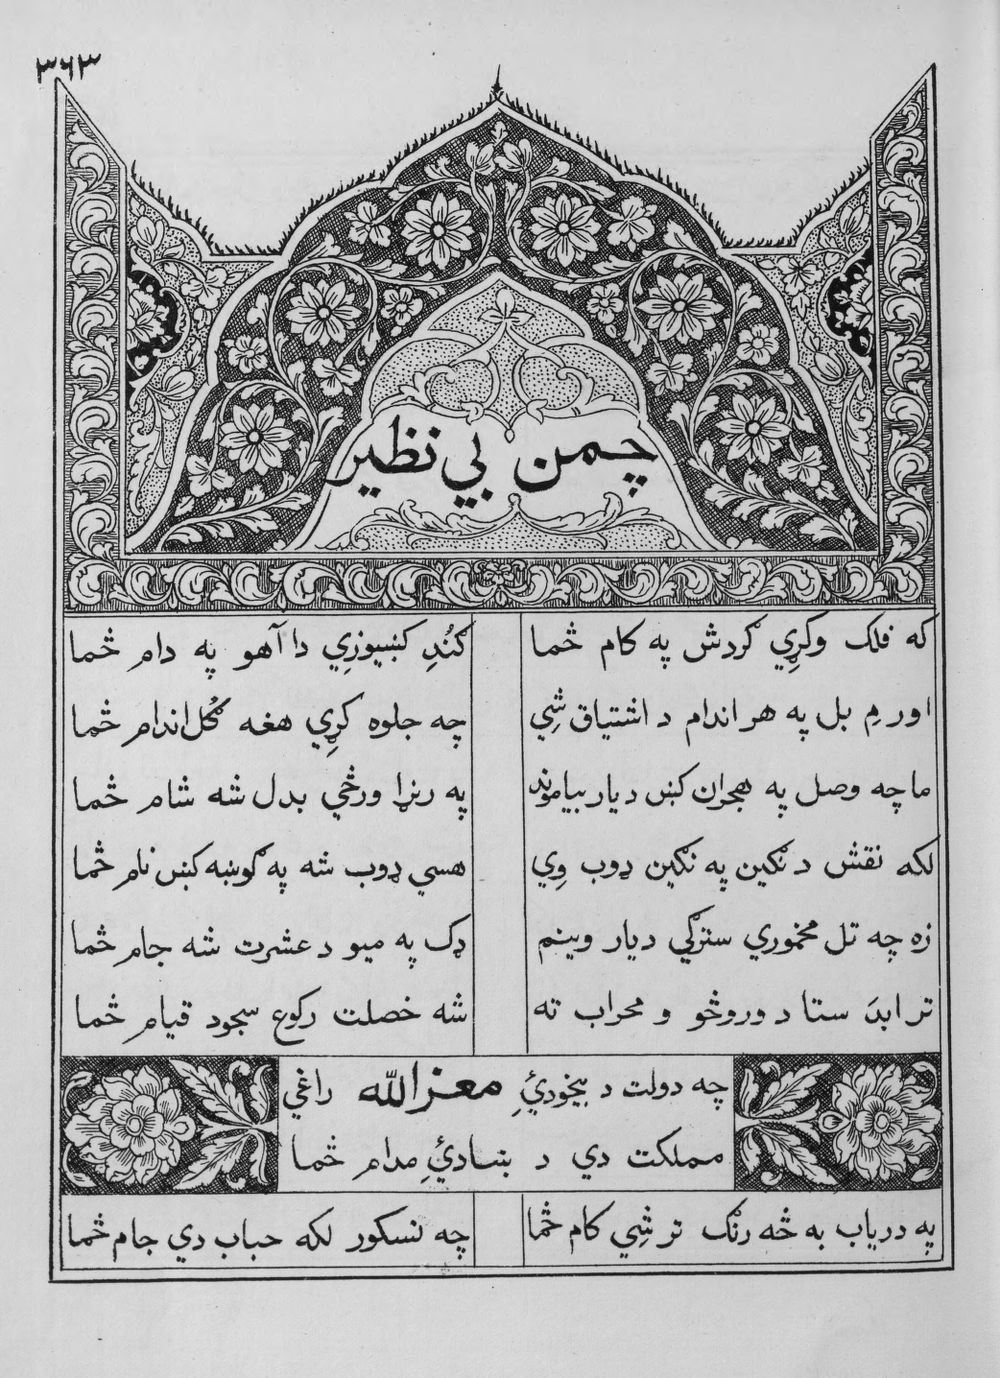 ۳۶۳
چمن بي نظير
که فلک وکړِي ګردش په کام څما کُنُدِ کښيوزي دا آهو په دام څما
اور مِ بل په هر اندام د اشتياق شِي چه جلوه کړِي هغه ګُل اندام څما
ما چه وصل په هجران کښ د يار بياموند په رنړا ورڅي بدل شه شام څما
لکه نقش د نګين په نګين ډوب وِي هسي ډوب شه په ګوښه کښ نام څما
زه چه تل مخموري سترګي د يار وينم ډک په ميو د عشرت شه جام څما
تر ابدَ ستا د وروڅو و محراب ته شه خصلت رکوع سجود قيام څما
چه دولت د بيخودئِ معز الله راغي
مملکت دي د ښادئِ مدام څما
په درياب به څه رنګ تر شِي کام څما چه نسکور لکه حباب دي جام څما